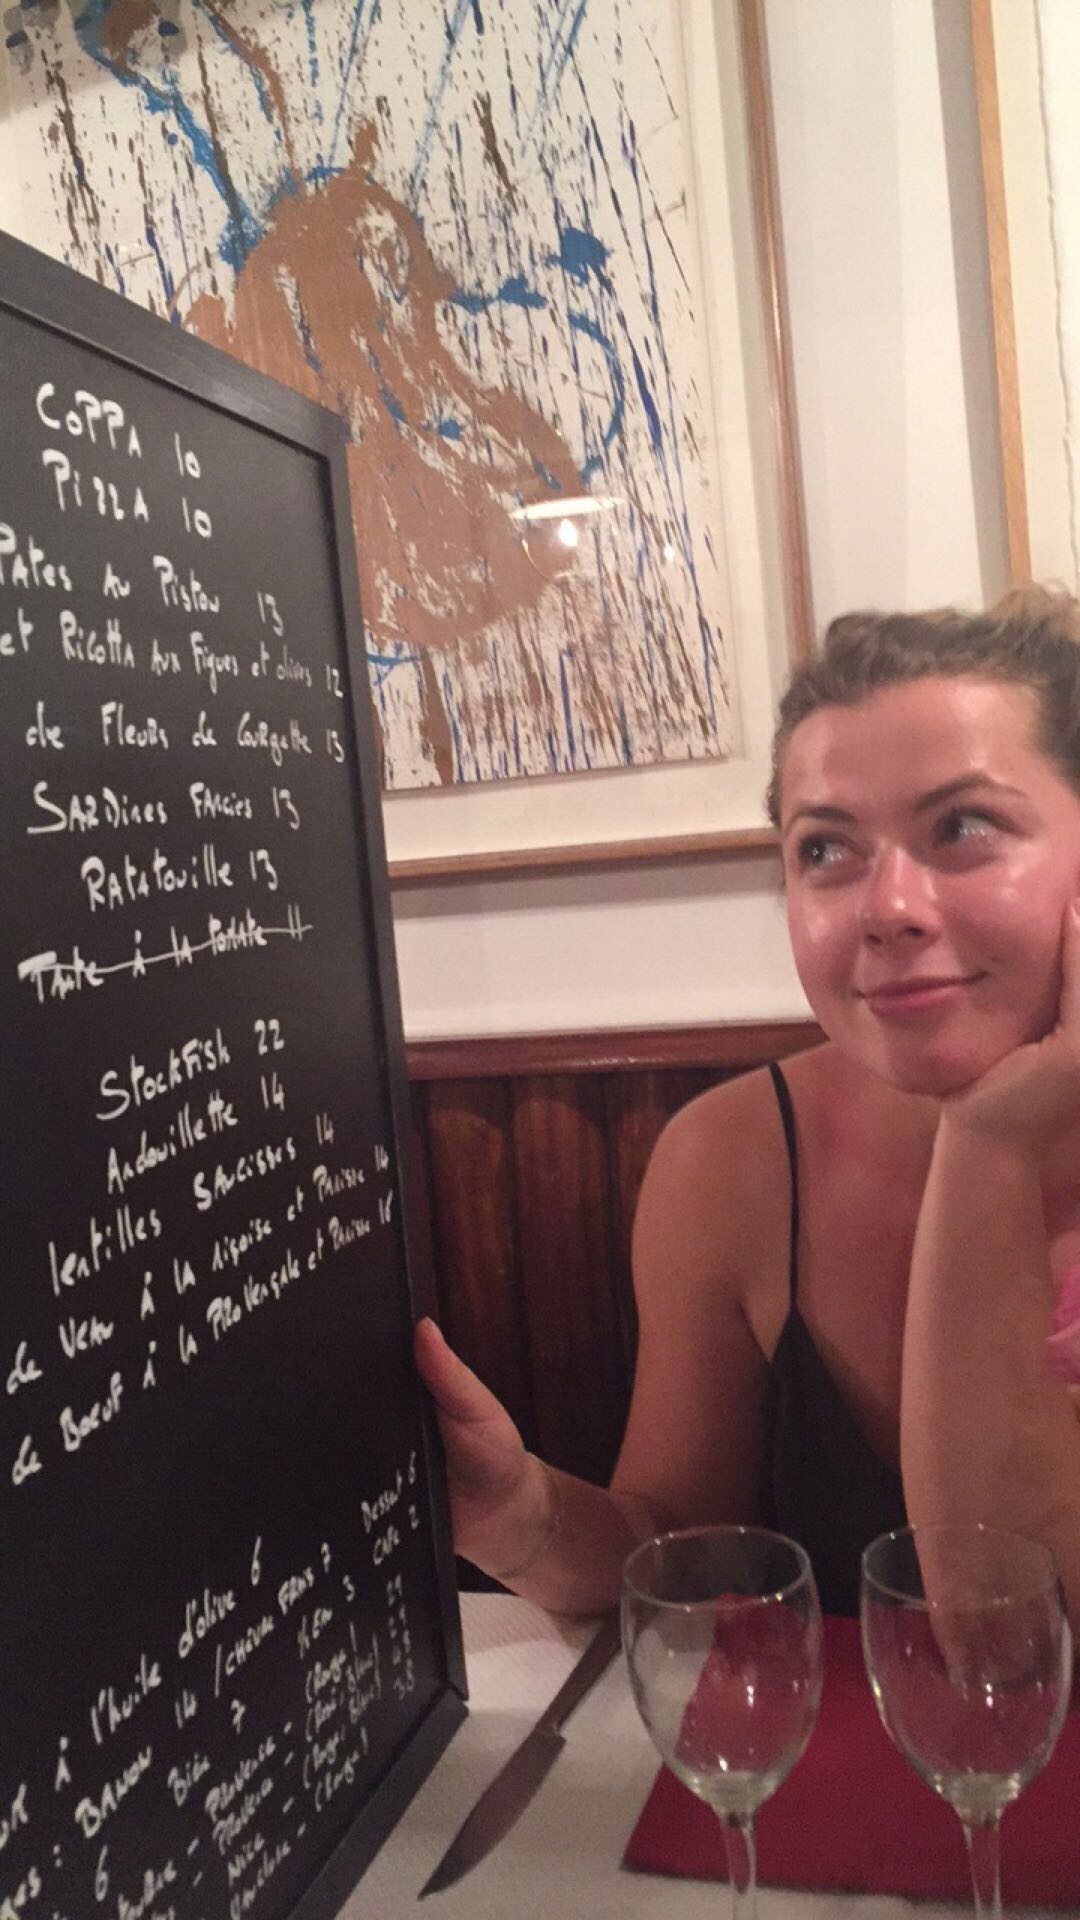 COPPA 10
PIZZA 10
Pates Au Pistou 13
et Ricotta Aux Figues et olives 12
de Fleurs de Courgette 13
SARDines FARcies 13
RAtAtouille 13
Tarte à la tomate 11
StockFish 22
Andouillette 14
lentilles SAucisses 14
de VeAu à lA niçoise et Panisse 14
de Boeuf à lA Provençale et Panisse 16
à l'huile d'olive 6
BANON 14 / CHEVRE FRAIS 7
Dessert 6
CAFE 2
6
7
3
Provence
Provence
Nice
(Rouge)